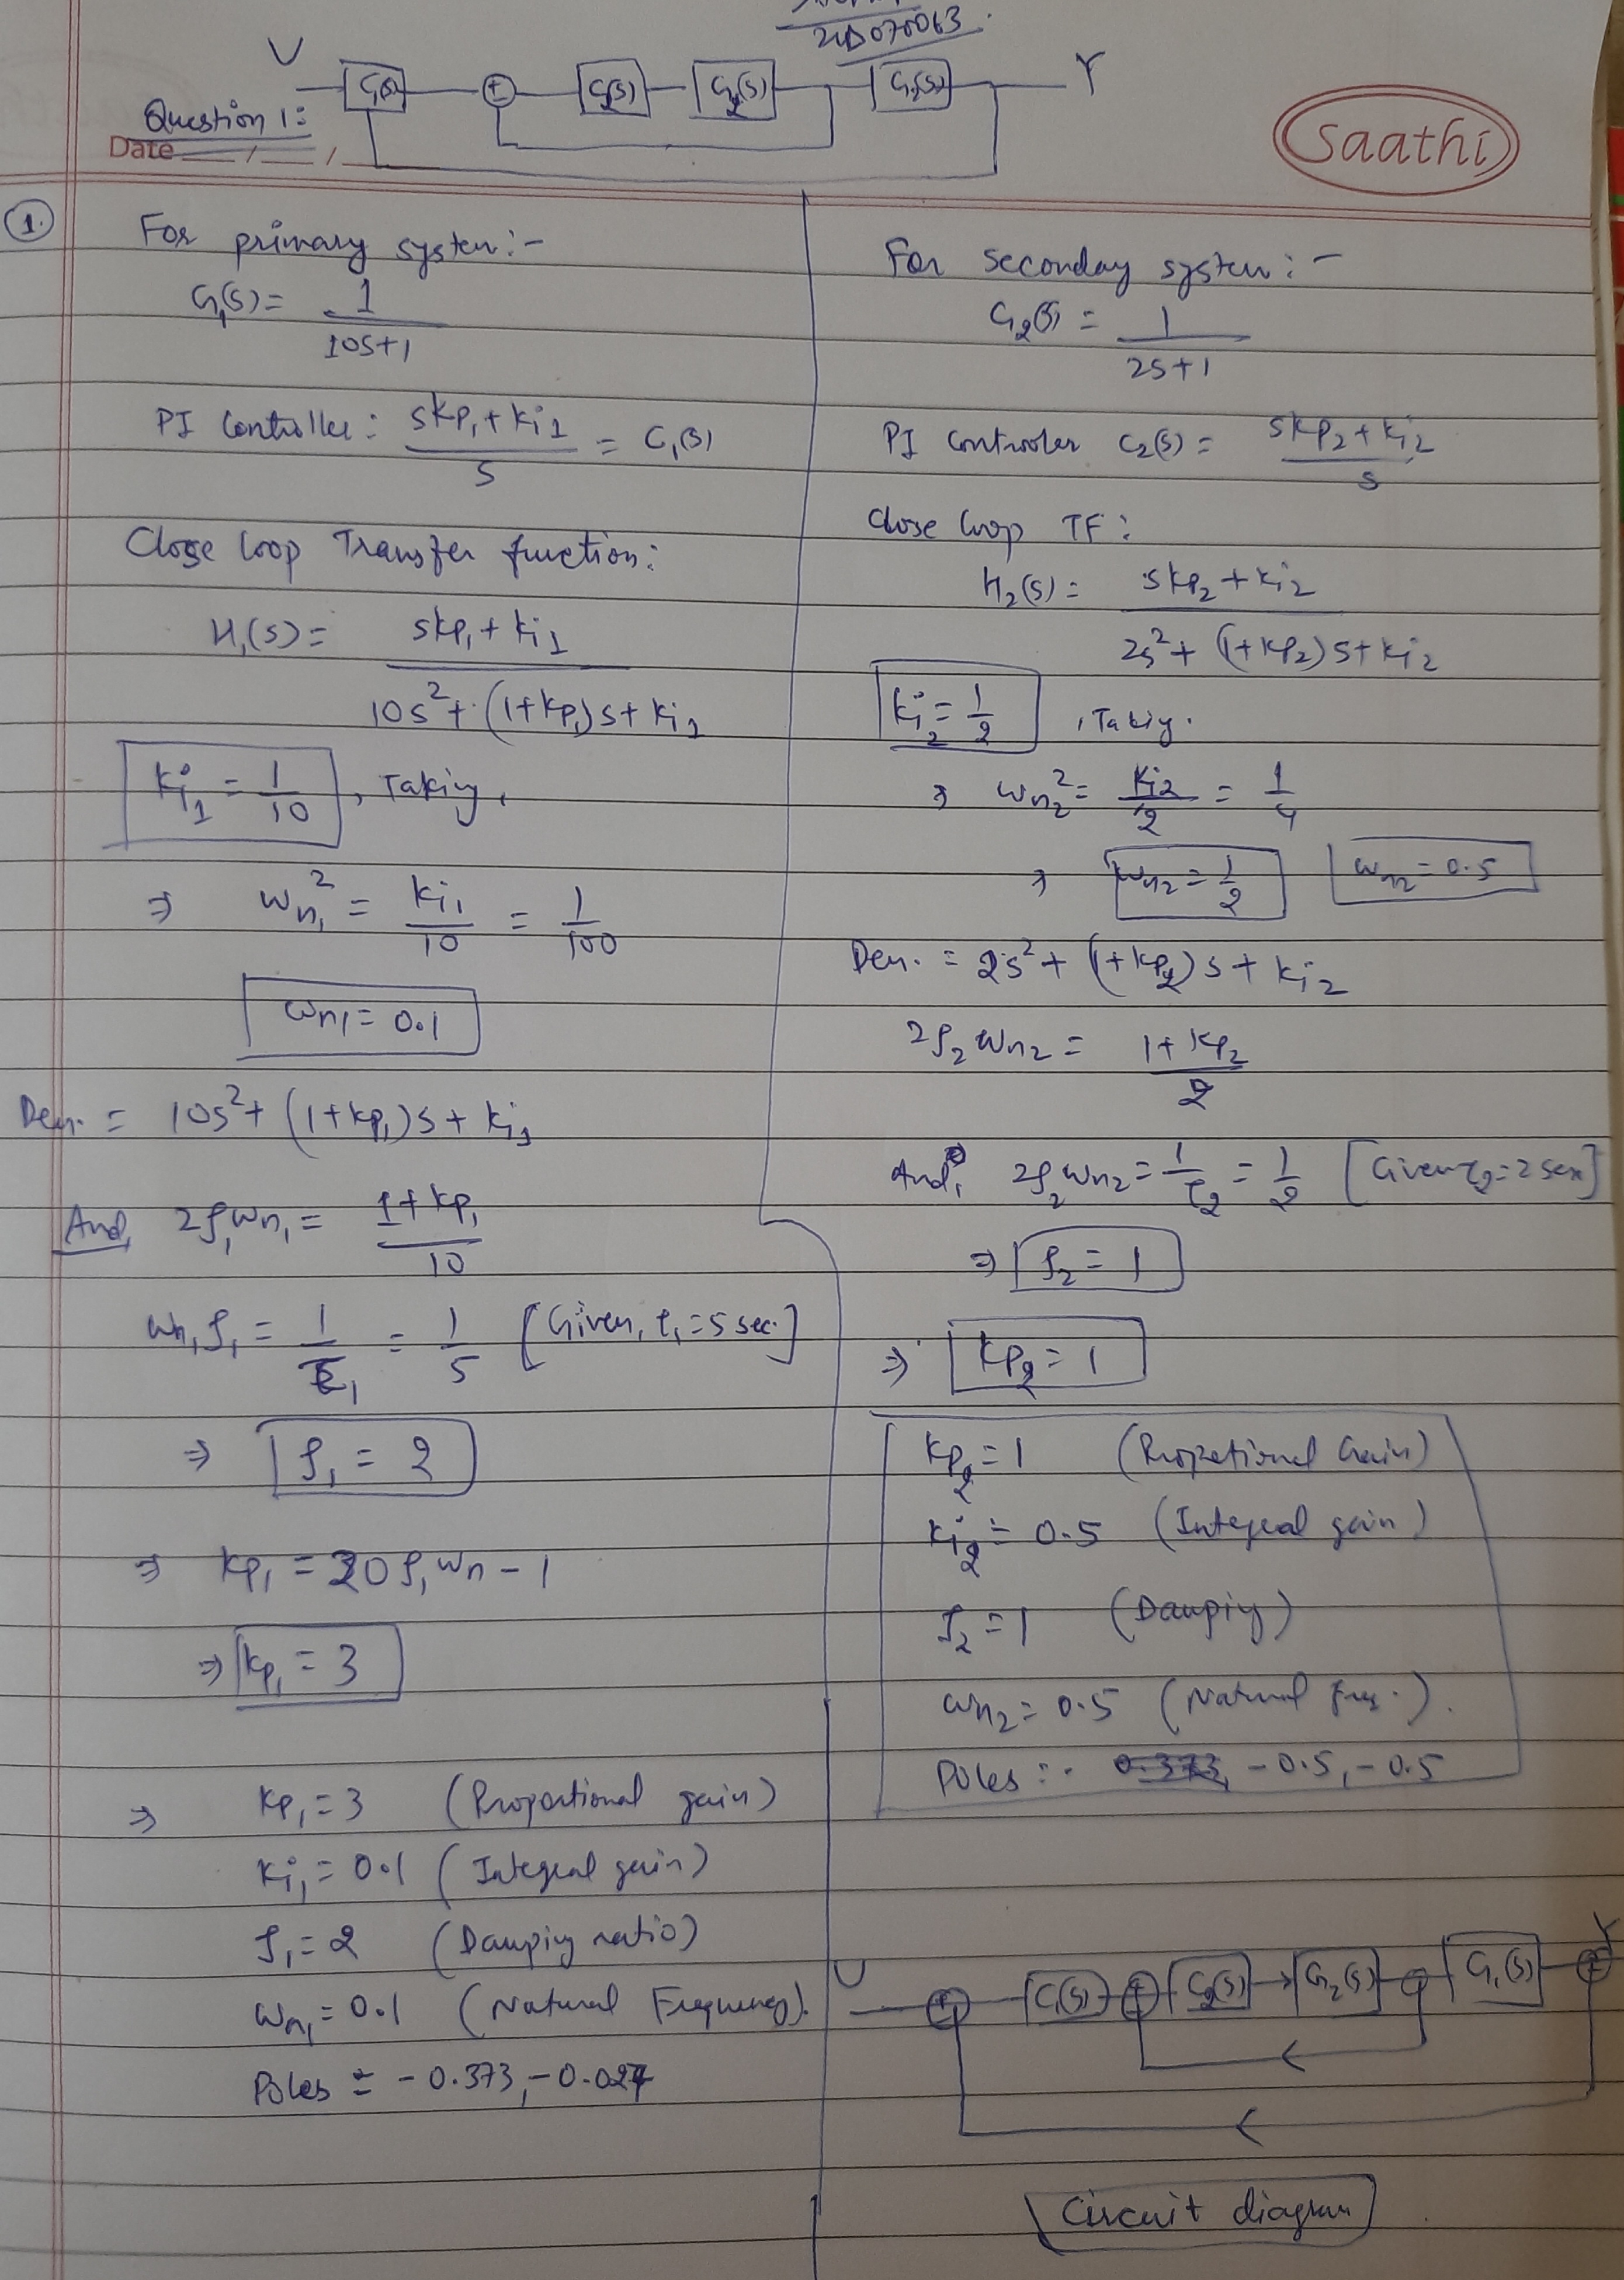 21D070063
U
C₁(s)
±
C₂(s)
G₂(s)
G₁(s)
Y
Question 1:
Date __/__/__
Saathi
1.
For primary system:-
G₁(s) = 1/(10s+1)
PI Controller: (skp₁ + ki₁)/s = C₁(s)
Close loop Transfer function:
H₁(s) = (skp₁ + ki₁)/(10s² + (1+kp₁)s + ki₁)
ki₁ = 1/10, Taking,
⇒ ωn₁² = ki₁/10 = 1/100
ωn₁ = 0.1
Den. = 10s² + (1+kp₁)s + ki₁
And, 2ρ₁ωn₁ = (1+kp₁)/10
ωn₁ρ₁ = 1/τ₁ = 1/5 [Given, τ₁ = 5 sec.]
⇒ ρ₁ = 2
⇒ kp₁ = 20ρ₁ωn - 1
⇒ kp₁ = 3
⇒ kp₁ = 3 (Proportional gain)
ki₁ = 0.1 (Integral gain)
ρ₁ = 2 (Damping ratio)
ωn₁ = 0.1 (Natural Frequency).
Poles = -0.373, -0.027
For seconday system:-
G₂(s) = 1/(2s+1)
PI controoler C₂(s) = (skp₂ + ki₂)/s
Close loop TF:
H₂(s) = (skp₂ + ki₂)/(2s² + (1+kp₂)s + ki₂)
ki₂ = 1/2, Taking.
⇒ ωn₂² = ki₂/2 = 1/4
⇒ ωn₂ = 1/2 ωn₂ = 0.5
Den. = 2s² + (1+kp₂)s + ki₂
2ρ₂ωn₂ = (1+kp₂)/2
And, 2ρ₂ωn₂ = 1/τ₂ = 1/2 [Given τ₂ = 2 sec]
⇒ ρ₂ = 1
⇒ kp₂ = 1
kp₂ = 1 (Propetional Gain)
ki₂ = 0.5 (Integral gain)
ρ₂ = 1 (Damping)
ωn₂ = 0.5 (Natural freq.).
Poles :- 0.373, -0.5, -0.5
U
+
C₁(s)
+
C₂(s)
G₂(s)
G₁(s)
Y
Circuit diagram